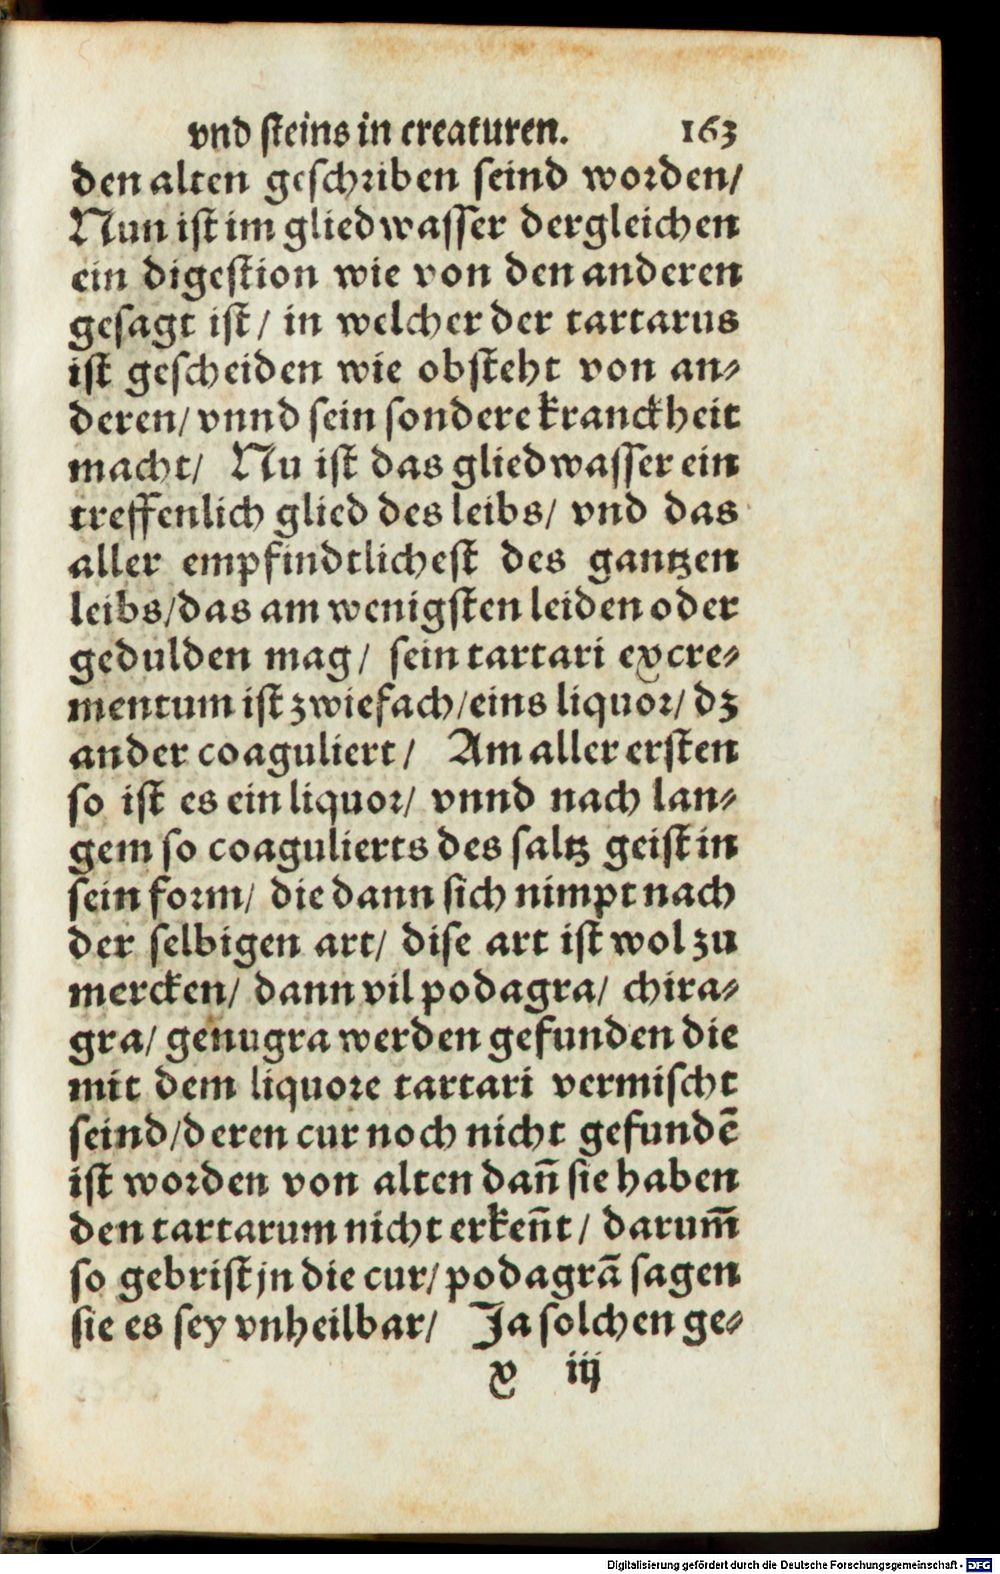 vnd steins in creaturen. 163
den alten geschriben seind worden/
Nun ist im gliedwasser dergleichen
ein digestion wie von den anderen
gesagt ist/ in welcher der tartarus
ist gescheiden wie obsteht von an⸗
deren/ vnnd sein sondere kranckheit
macht/ Nu ist das gliedwasser ein
treffenlich glied des leibs/ vnd das
aller empfindtlichest des gantzen
leibs/das am wenigsten leiden oder
gedulden mag/ sein tartari excre⸗
mentum ist zwiefach/eins liquor/ dz
ander coaguliert/ Am aller ersten
so ist es ein liquor/ vnnd nach lan⸗
gem so coagulierts des saltz geist in
sein form/ die dann sich nimpt nach
der selbigen art/ dise art ist wol zu
mercken/ dann vil podagra/ chira⸗
gra/ genugra werden gefunden die
mit dem liquore tartari vermischt
seind/deren cur noch nicht gefundē
ist worden von alten dan̄ sie haben
den tartarum nicht erken̄t/ darum̄
so gebrist jn die cur/ podagrā sagen
sie es sey vnheilbar/ Ja solchen ge⸗
x iij
Digitalisierung gefördert durch die Deutsche Forschungsgemeinschaft - DFG